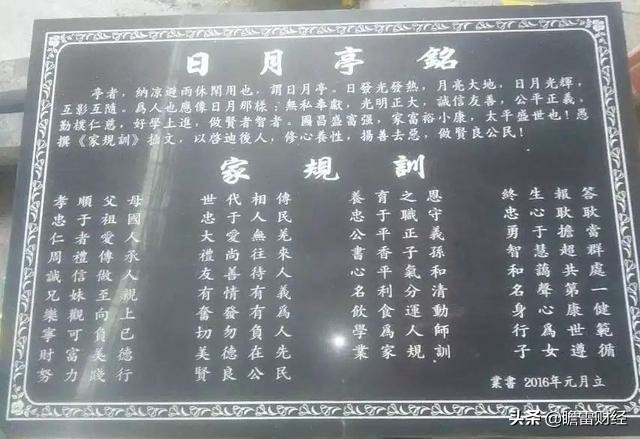 日月亭銘
亭者，納凉避雨休閑用也，謂日月亭。日發光發熱，月亮大地，日月光輝，
互影互隨。爲人也應像日月那樣：無私奉獻，光明正大，誠信友善，公平正義，
勤樸仁慈，好學上進，做賢者智者。國昌盛富强，家富裕小康，太平盛世也！愚
撰《家規訓》拙文，以啓迪後人，修心養性，揚善去惡，做賢良公民！
家規訓
孝順父母 世代相傳 養育之恩 終生報答
忠于祖國 忠于人民 忠于職守 忠心耿耿
仁者愛人 大愛無羌 公平正義 勇于擔當
周禮傳承 禮尚往來 書香子孫 智慧超群
誠信做人 友善待人 心平氣和 和謁共處
兄妹至親 有情有義 名利分清 名聲第一
樂觀向上 奮發有爲 飲食運動 身心康健
寧可負己 切勿負人 學爲人師 行爲世範
財富美德 美德在先 業家規訓 子女遵循
努力踐行 賢良公民
業書 2016年元月立
头条@瞻雷财经